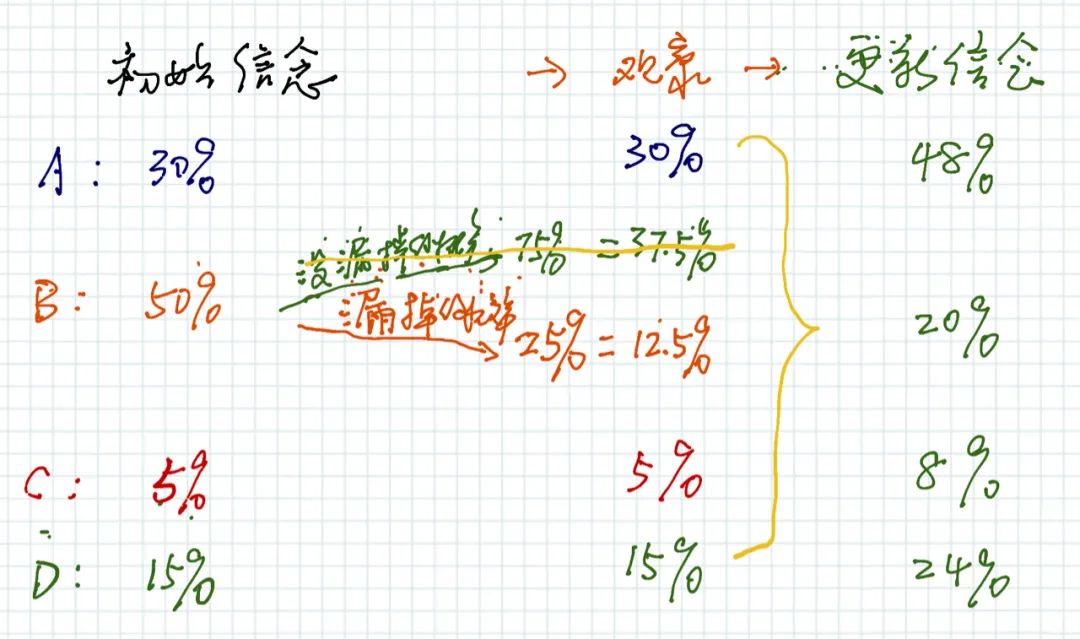 初始信念 → 观察 → 更新信念
A: 30% 30% 48%
没漏掉的概率 75% = 37.5%
B: 50% 漏掉的概率 25% = 12.5% 20%
C: 5% 5% 8%
D: 15% 15% 24%